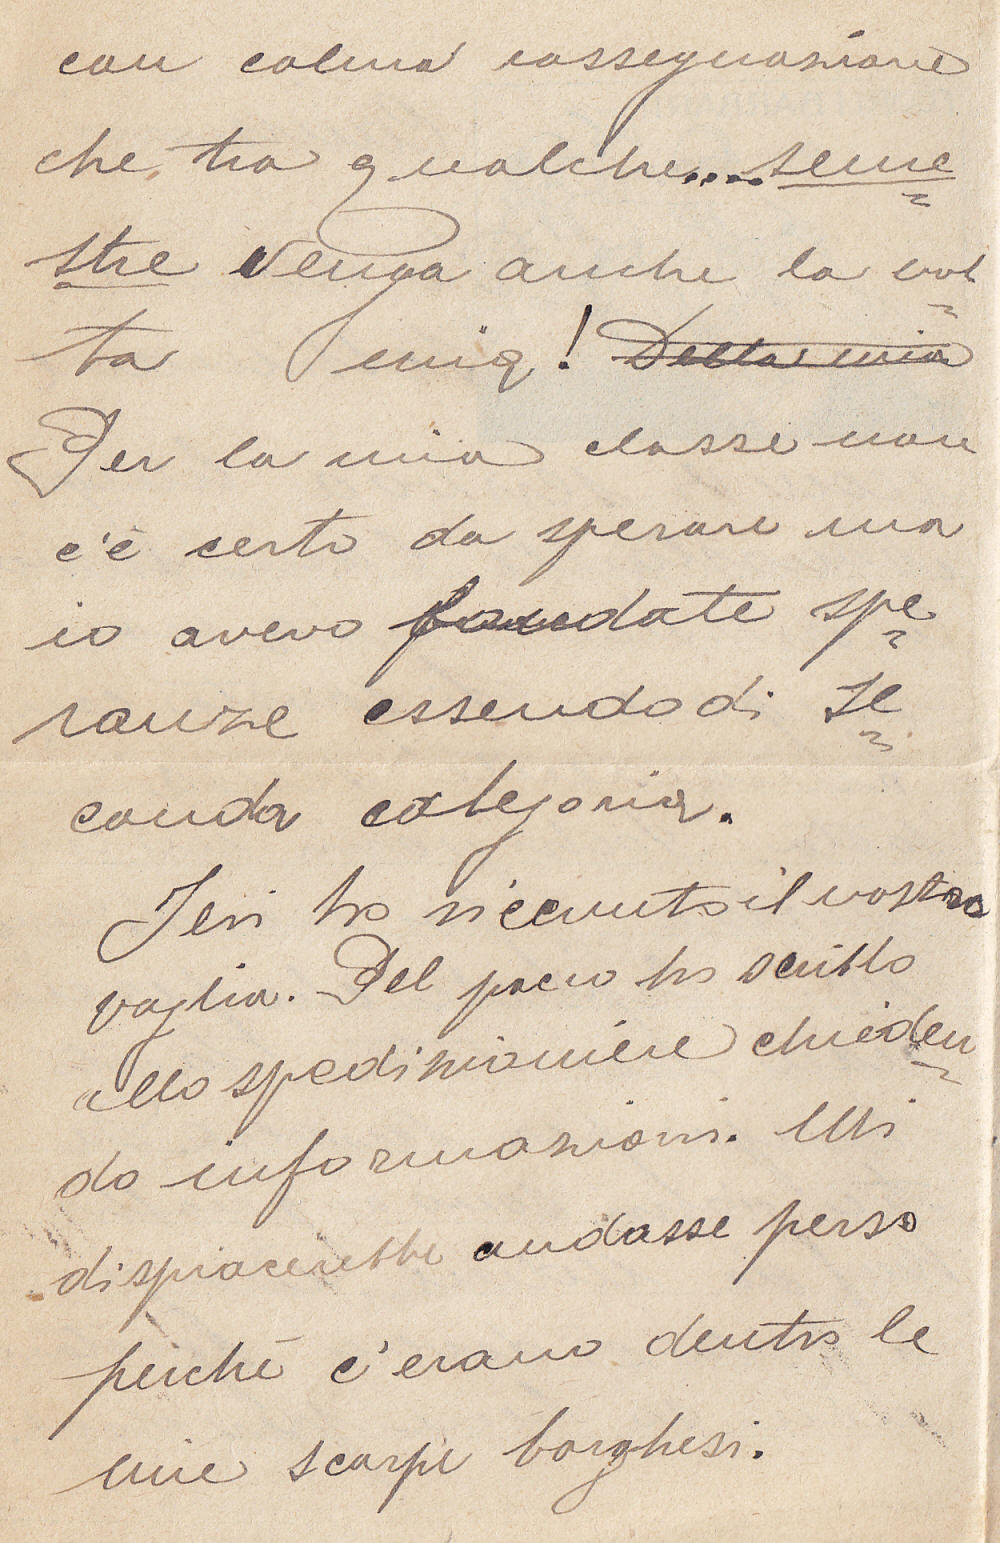 con calma rassegnazione
che tra qualche.... seme
stre venga anche la vol
ta mia! Della mia
Per la mia classe non
c'è certo da sperare ma
io avevo fondate spe
ranze essendo di se
conda categoria.
Ieri ho ricevuto il vostro
vaglia. Pel pacco ho scritto
allo spedizioniere chieden
do informazioni. Mi
dispiacerebbe andasse perso
perché c'erano dentro le
mie scarpe borghesi.